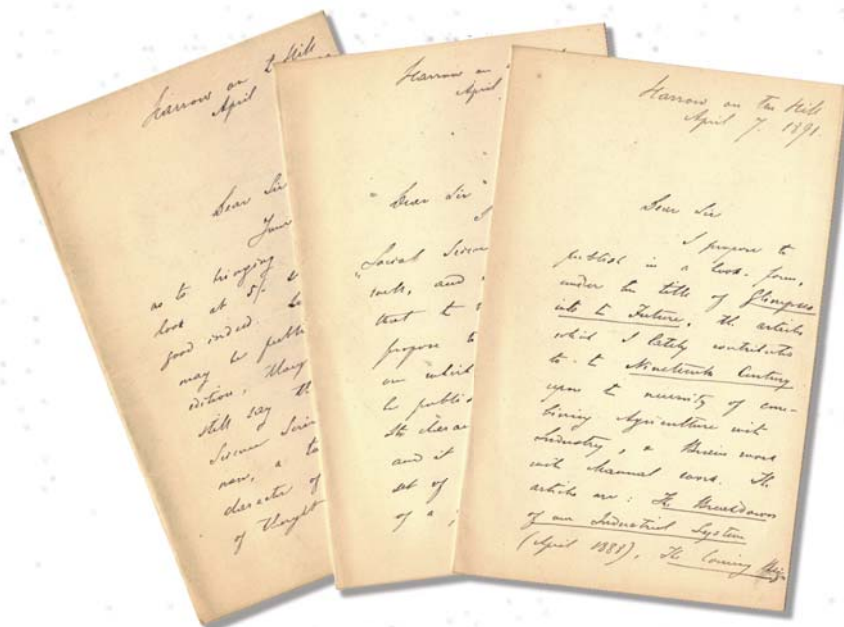 Harrow on t Hill
April
Dear Sir
Your
as to bringing
book at 5/-
good indeed.
may be publi
edition,
still say th
Science Series
now, a
character of
of thought
Harrow on
April
"Dear Sir"
I
"Social Scien
such, and
that to
propose to
on which
be publis
Its charac
and it
set of
of a
Harrow on the Hill
April 7. 1891.
Dear Sir
I propose to
publish in a book-form,
under the title of Glimpses
into t Future, the articles
which I lately contributed
to t Nineteenth Century
upon t necessity of com-
bining Agriculture with
Industry, & Brain work
with Manual work. The
articles are: The Breakdown
of our Industrial System
(April 1888), The Coming Reign